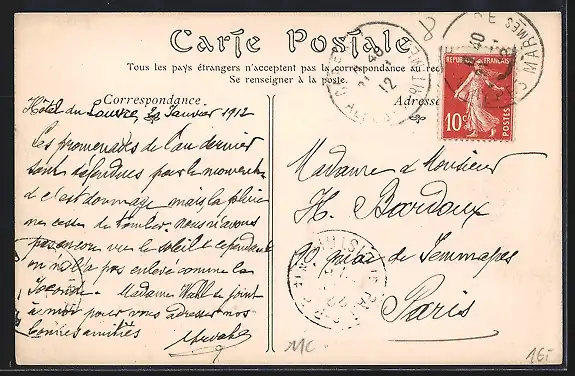 Carte Postale
Tous les pays étrangers n'acceptent pas la correspondance au rec
Se renseigner à la poste.
Correspondance.
Adresse
Hôtel du Louvre, Janvier 1912
Les promenades de l'an dernier
sont défendues pour le moment
et c'est dommage mais la pluie
ne cesse de tomber. nous n'avons
pas encore vu le soleil & cependant
on ne l'a pas enlevé comme la
Joconde. Madame Wahl se joint
à moi pour vous adresser nos
bonnes amitiés
Madame & Monsieur
H. Bardoux
90 quai de Jemmapes
Paris
REPUBLIQUE FRANÇAISE
10c
POSTES
12
MC
16.-